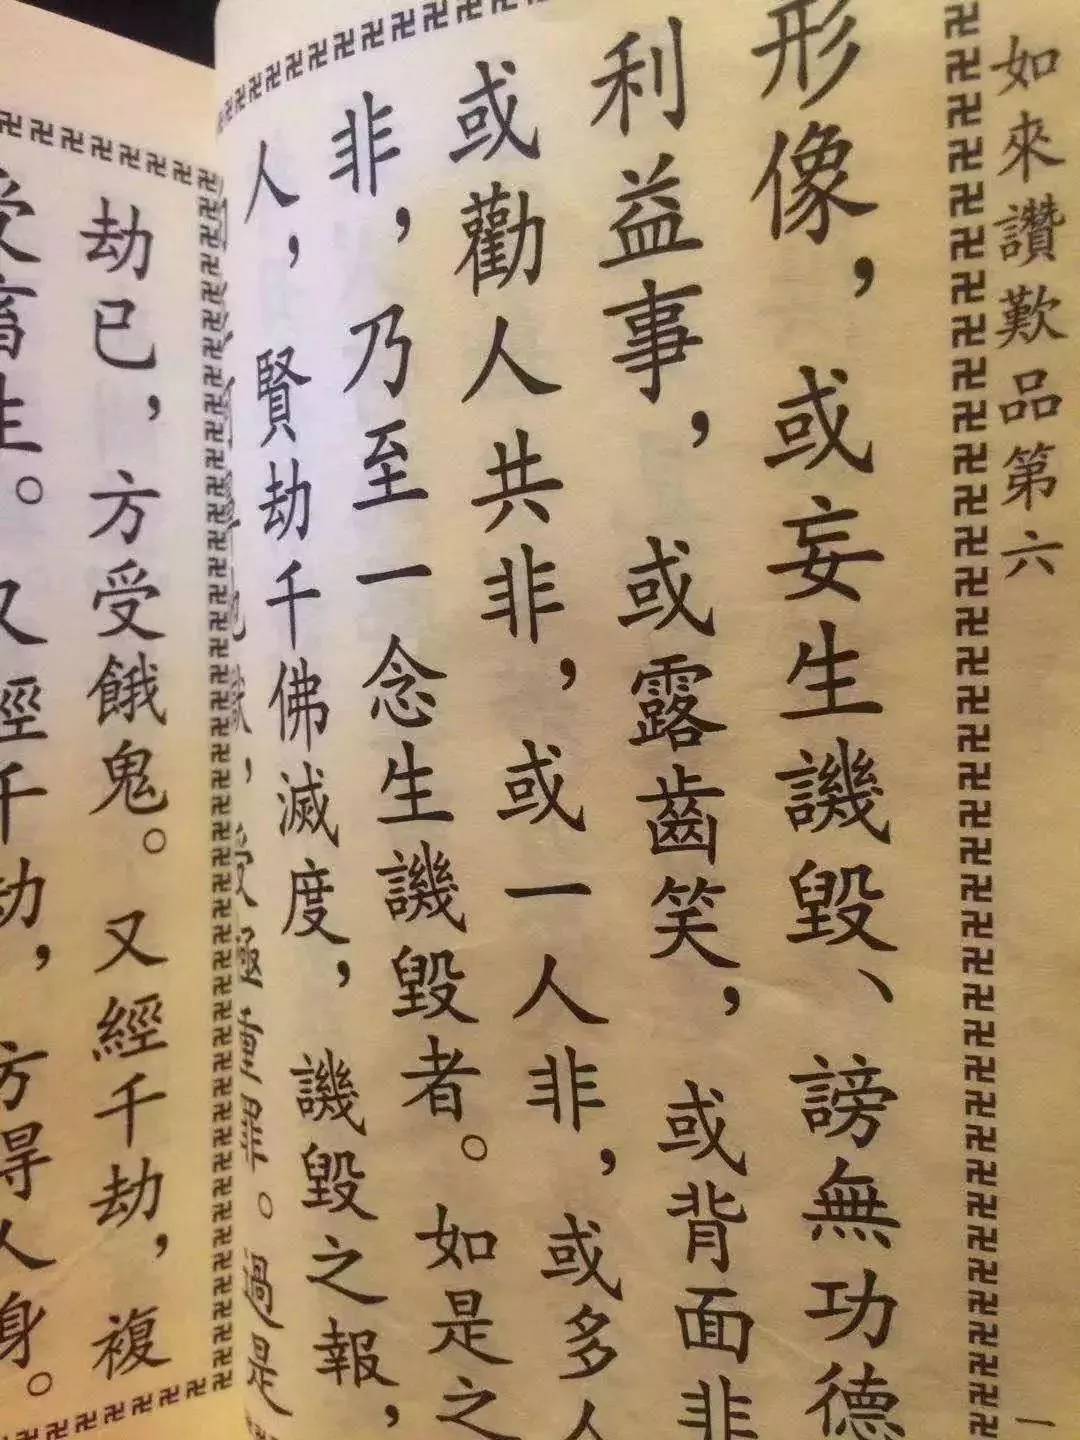 如來讚歎品第六
一
形像，或妄生譏毀、謗無功德
利益事，或露齒笑，或背面非
或勸人共非，或一人非，或多人
非，乃至一念生譏毀者。如是之
人，賢劫千佛滅度，譏毀之報，
極重罪。過是
劫已，方受餓鬼。又經千劫，複
受畜生。又經千劫，方得人身。